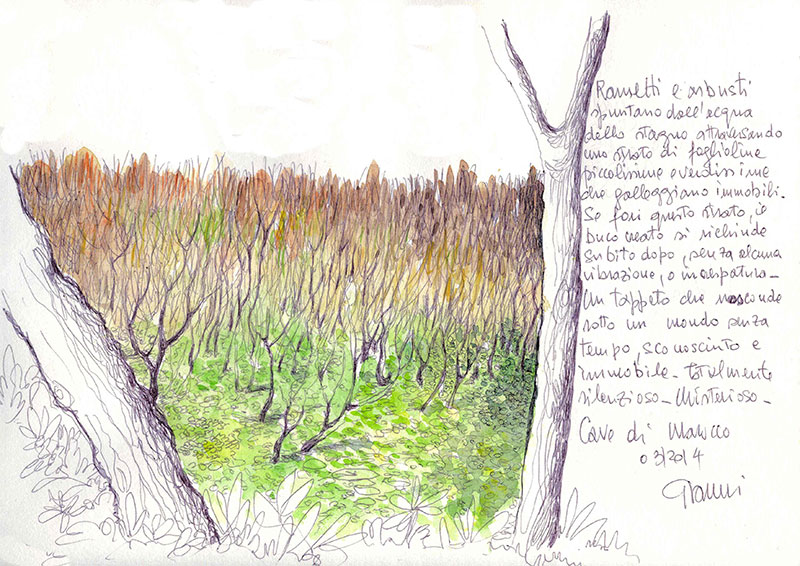 Rametti e arbusti
spuntano dall'acqua
dello stagno attraversando
uno strato di foglioline
piccolissime e verdissime
che galleggiano immobili.
Se fori questo strato, il
buco creato si richiude
subito dopo, senza alcuna
vibrazione, o increspatura_
Un tappeto che nasconde
sotto un mondo senza
tempo, sconosciuto e
immobile_ totalmente
silenzioso_ Misterioso_
Cave di Marocco
03/2014
Gianni